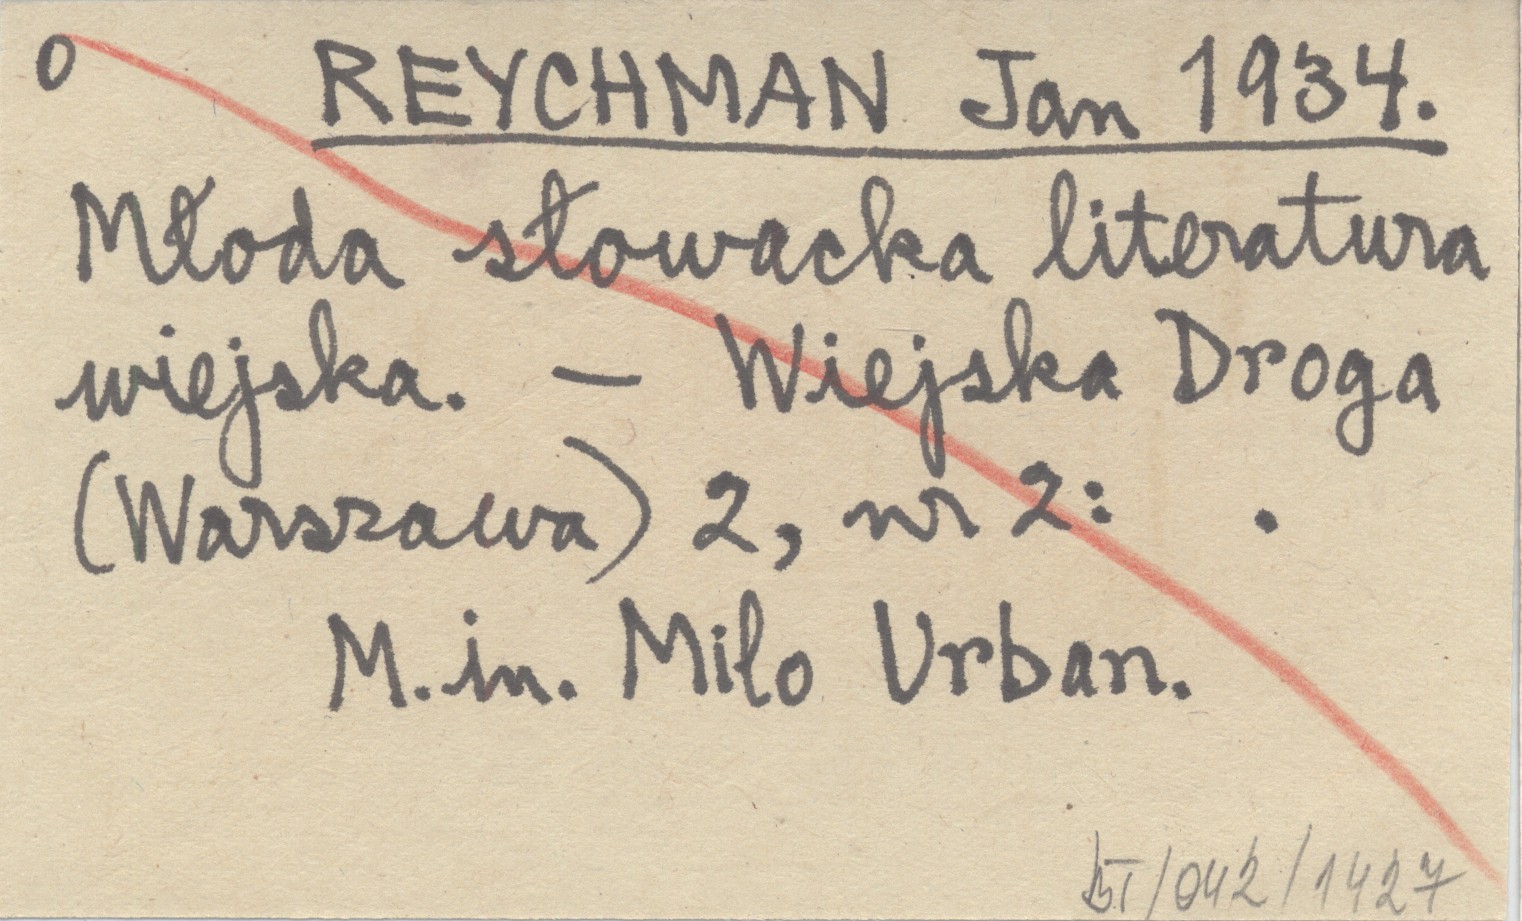 o REYCHMAN Jan 1934.
Młoda słowacka literatura
wiejska. – Wiejska Droga
(Warszawa) 2, nr 2: .
M. in. Milo Urban.
/042/1427